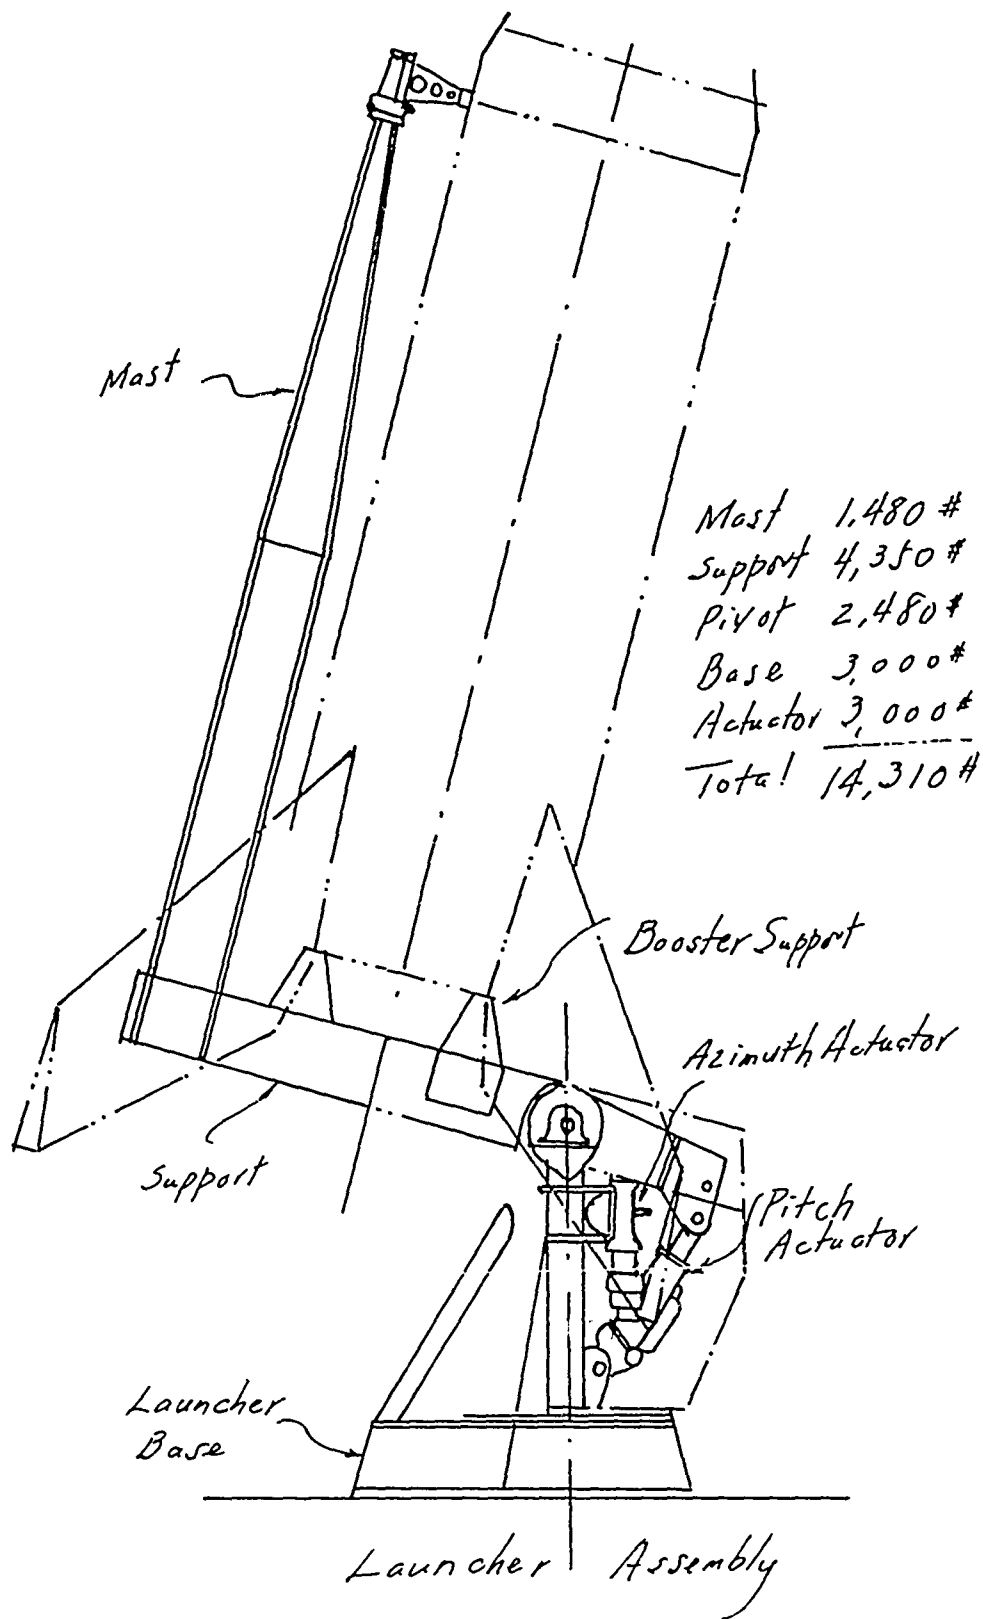 Mast
Mast 1,480 #
Support 4,350 #
Pivot 2,480 #
Base 3,000 #
Actuator 3,000 #
Total 14,310 #
Booster Support
Azimuth Actuator
Support
Pitch
Actuator
Launcher
Base
Launcher Assembly